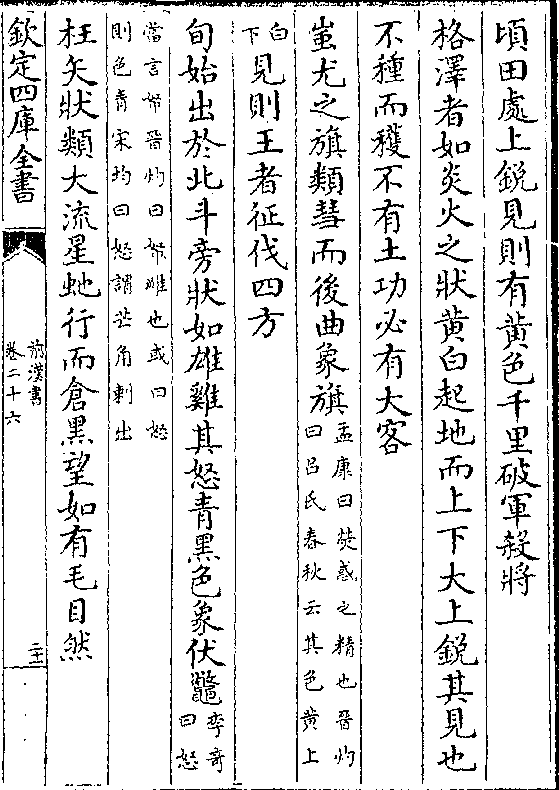 頃田處上鋭見則有黄色千里破軍殺將
格澤者如炎火之狀黄白起地而上下大上鋭其見也
不種而穫不有土功必有大客
蚩尤之旗類彗而後曲象旗孟康曰熒惑之精也晉灼
曰吕氏春秋云其色黄上
白
下見則王者征伐四方
旬始出於北斗旁狀如雄雞其怒青黑色象伏鼈李奇
曰怒
當言帑晉灼曰帑雌也或曰怒
則色青宋均曰怒謂芒角刺出
枉矢狀類大流星虵行而倉黑望如有毛目然
欽定四庫全書
前漢書
卷二十六
二十一